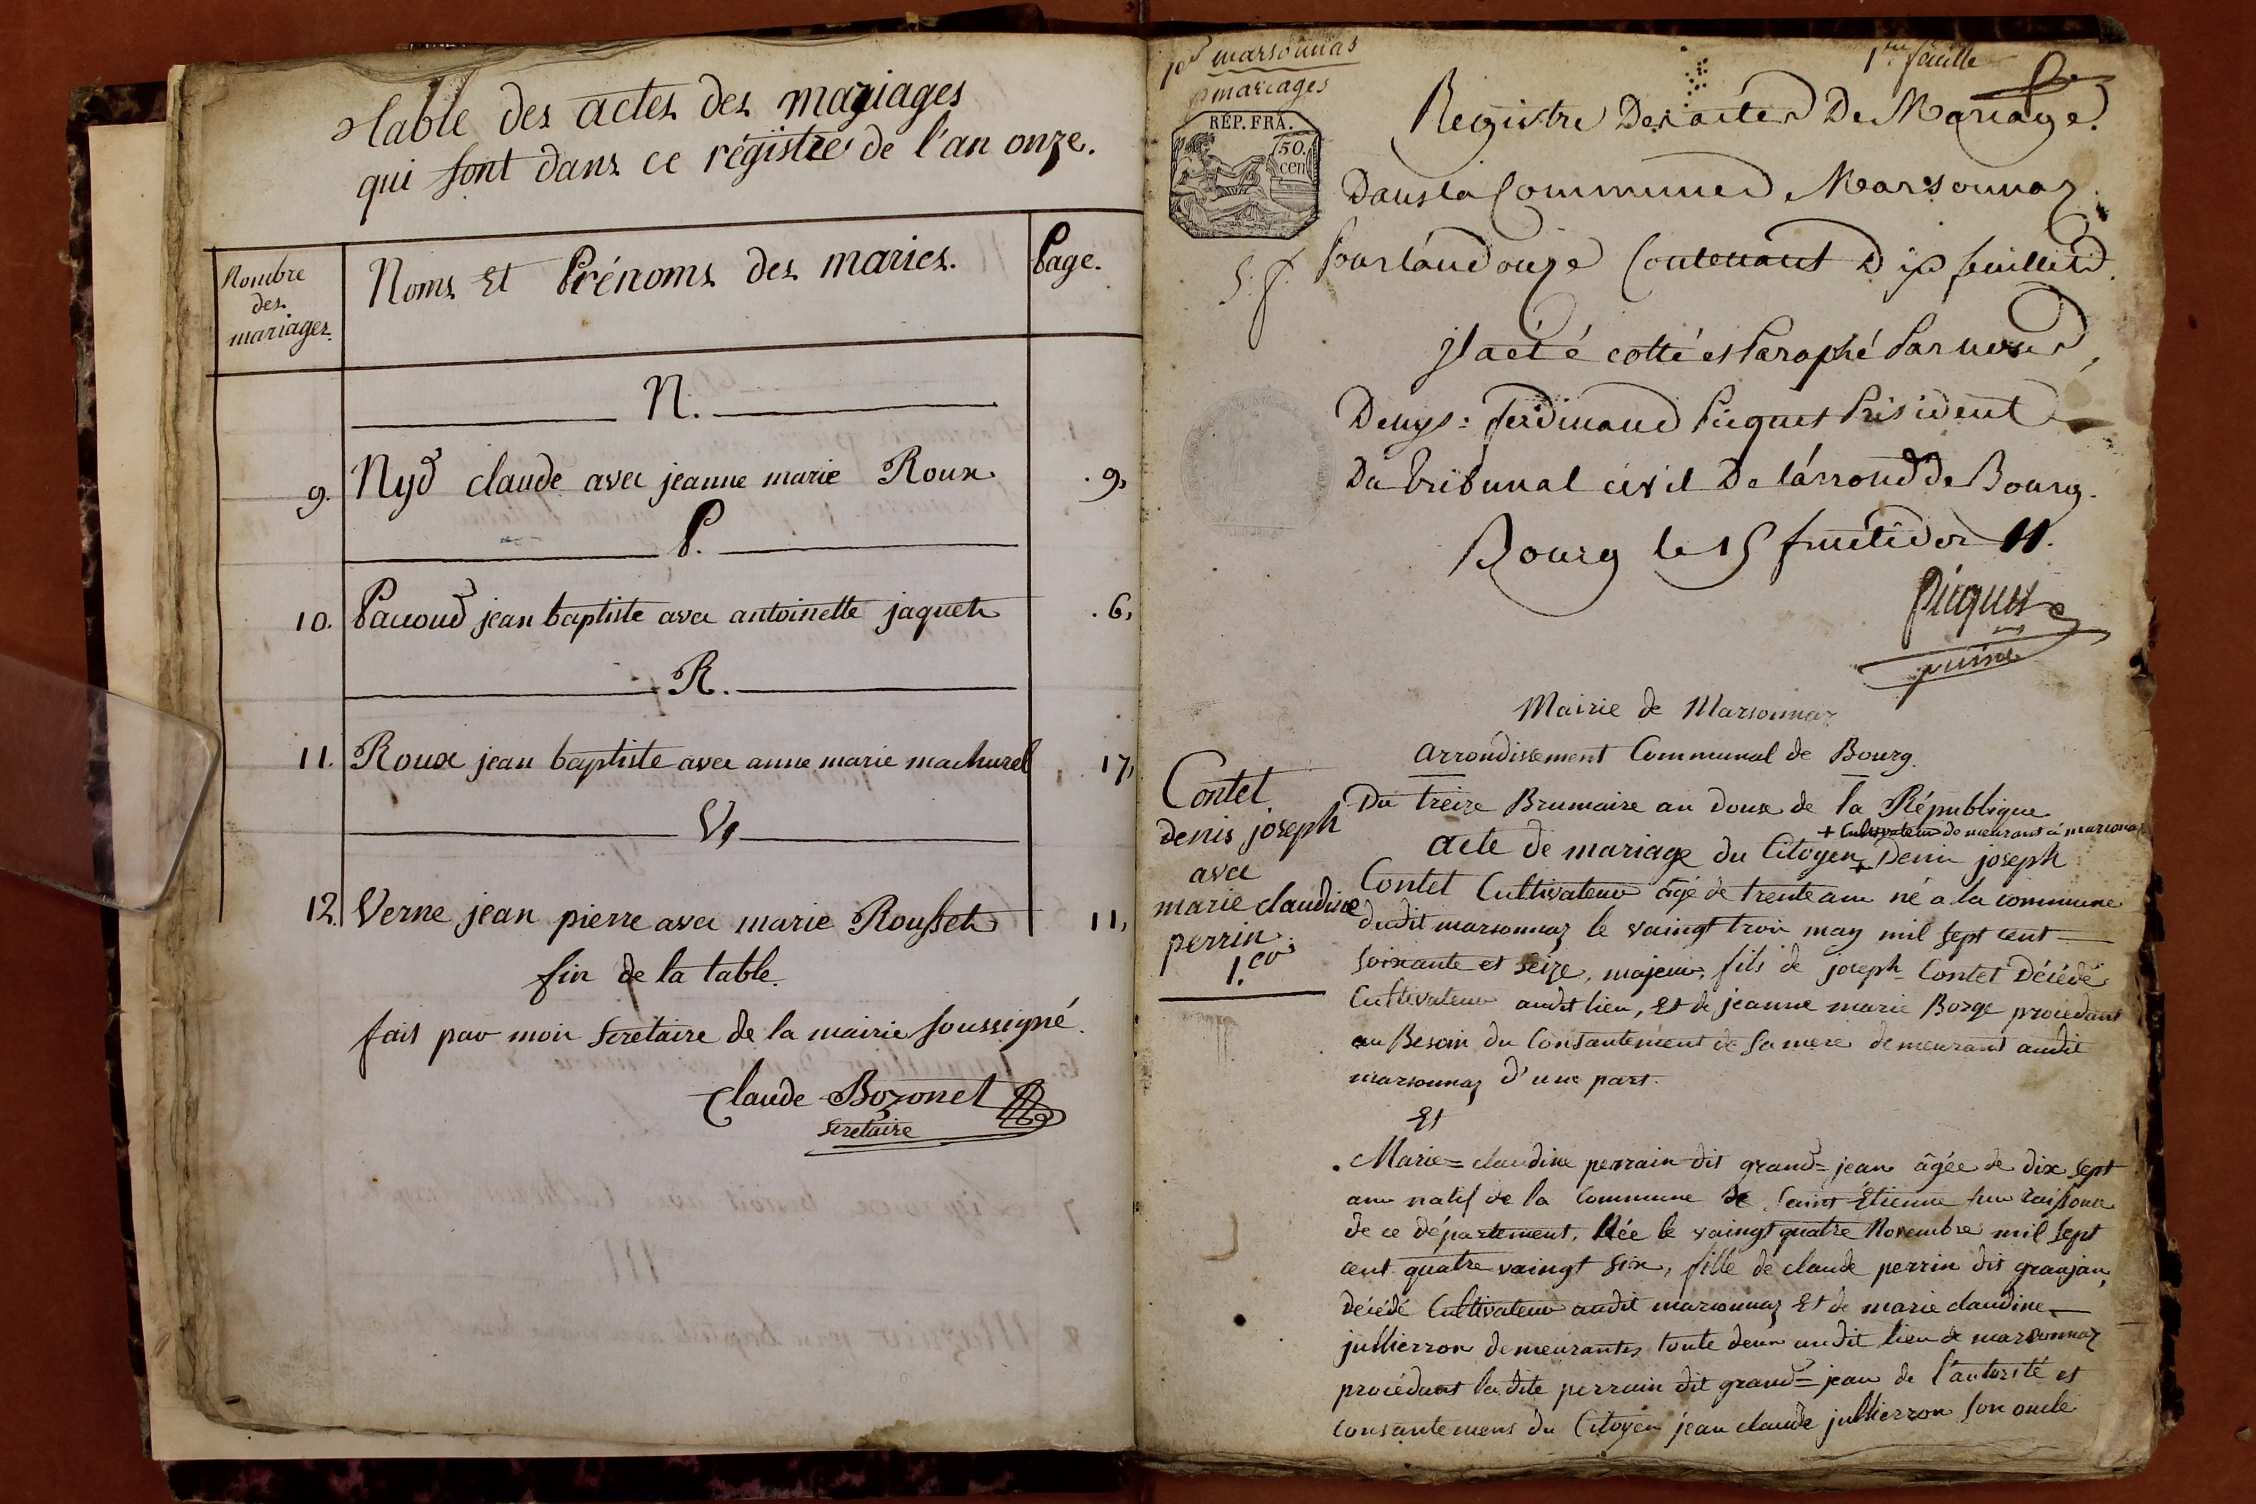 Table des actes des mariages
qui sont dans ce régistre de l'an onze.
Nombre
des
mariages.
Noms Et Prénoms des mariés.
Page.
N.
9. Nyd claude avec jeanne marie Roux .9,
P.
10. Pauoud jean baptiste avec antoinette jaquet .6,
R.
11. Roux jean baptiste avec anne marie machurel 17,
V,
12. Verne jean pierre avec marie Rousset 11,
fin de la table.
fait par moi Secretaire de la mairie soussigné.
Claude Bozonet
Secretaire
marsonnas
mariages
REP. FRA.
50.
cen
1re feuille
Registre Des actes De Mariage
Dans la Commune De Marsonnaz
Pour l'an douze Contenant Dix feuillets.
Il a été cotté et Paraphé Par nous
Denys: ferdinand Picquet Président
Du tribunal civil De l'arrond de Bourg.
Bourg le 15 fructidor 11.
Picquet
puiné
Mairie de Marsonnaz
arrondissement Communal de Bourg.
Contet
denis joseph
avec
marie claudine
perrin
1.er
Du treize Brumaire an douze de la République
+ Cultivateur demeurant à marsonaz
acte de mariage du Citoyen + Denis joseph
Contet Cultivateur âgé de trente ans né a la commune
dudit marsonnaz le vaingt trois may mil sept cent
soixante et seize, majeur, fils de joseph Contet Décédé
Cultivateur audit lieu, Et de jeanne marie Borge procédant
au Besoin du Consantement de Sa mere demeurant audit
marsonnaz d'une part.
Et
Marie=claudine perrain dit grand=jean âgée de dix sept
ans natif de la Commune de Saint Étienne sur raissouse
de ce département, Née le vaingt quatre Novembre mil sept
cent quatre vaingt six, fille de claude perrin dit granjan,
décédé Cultivateur audit marsonnaz Et de marie claudine
jullierron demeurantes toute deux audit lieu de marsonnaz
procédant la dite perrain dit grand=jean de l'autorité et
consantement du Citoyen jean claude jullierron son oncle